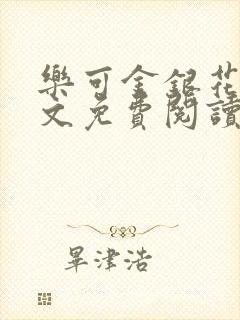 樂可金銀花
文免費閱讀
畢津浩